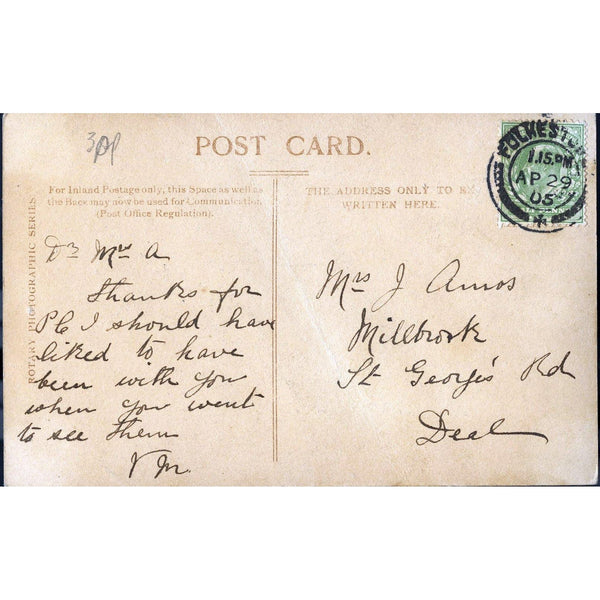 3pp
POST CARD.
For Inland Postage only, this Space as well as
the Back may now be used for Communication.
(Post Office Regulation).
THE ADDRESS ONLY TO BE
WRITTEN HERE.
ROTARY PHOTOGRAPHIC SERIES
FOLKESTONE
1.15.PM
AP 29
05
Dr Mrs A
thanks for
PC I should have
liked to have
been with you
when you went
to see them
V M.
Mrs J Amos
Millbrook
St George's Rd
Deal